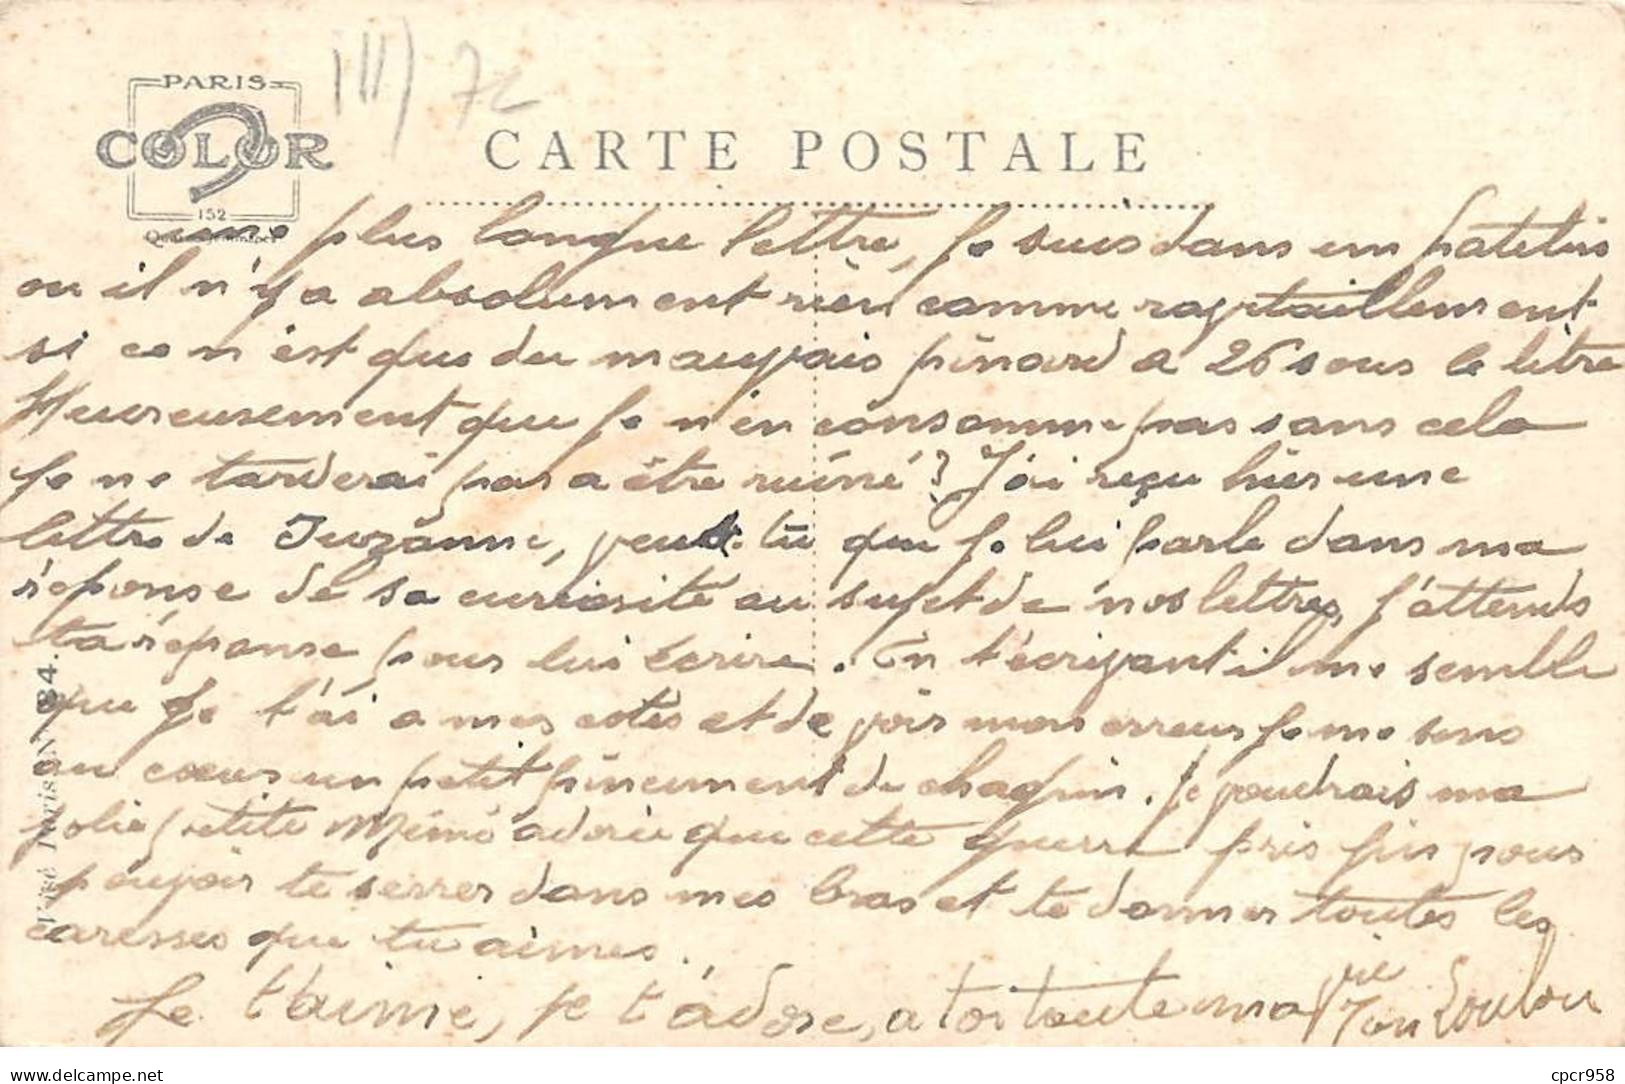 PARIS
COLOR
152
CARTE POSTALE
une plus longue lettre, je suis dans un patelin
ou il n'y a absolument rien comme ravitaillement
si ce n'est que du mauvais pinard a 26 sous le litre
Heureusement que je n'en consomme pas sans cela
je ne tarderai pas a être ruiné? J'ai reçu hier une
lettre de Suzanne, veux tu que je lui parle dans ma
réponse de sa curiosité au sujet de nos lettres, j'attends
ta réponse pour lui écrire. En t'écrivant il me semble
que je t'ai a mes cotés et de voir mon erreur je me sens
au cœur un petit pincement de chagrin. Je voudrais ma
jolie petite Mémé adorée que cette guerre pris fin pour
pouvoir te serrer dans mes bras et te donner toutes les
caresses que tu aimes.
Je t'aime, je t'adore, a toi toute ma vie Ton Loulou
Visé Paris N 84.
cpcr958